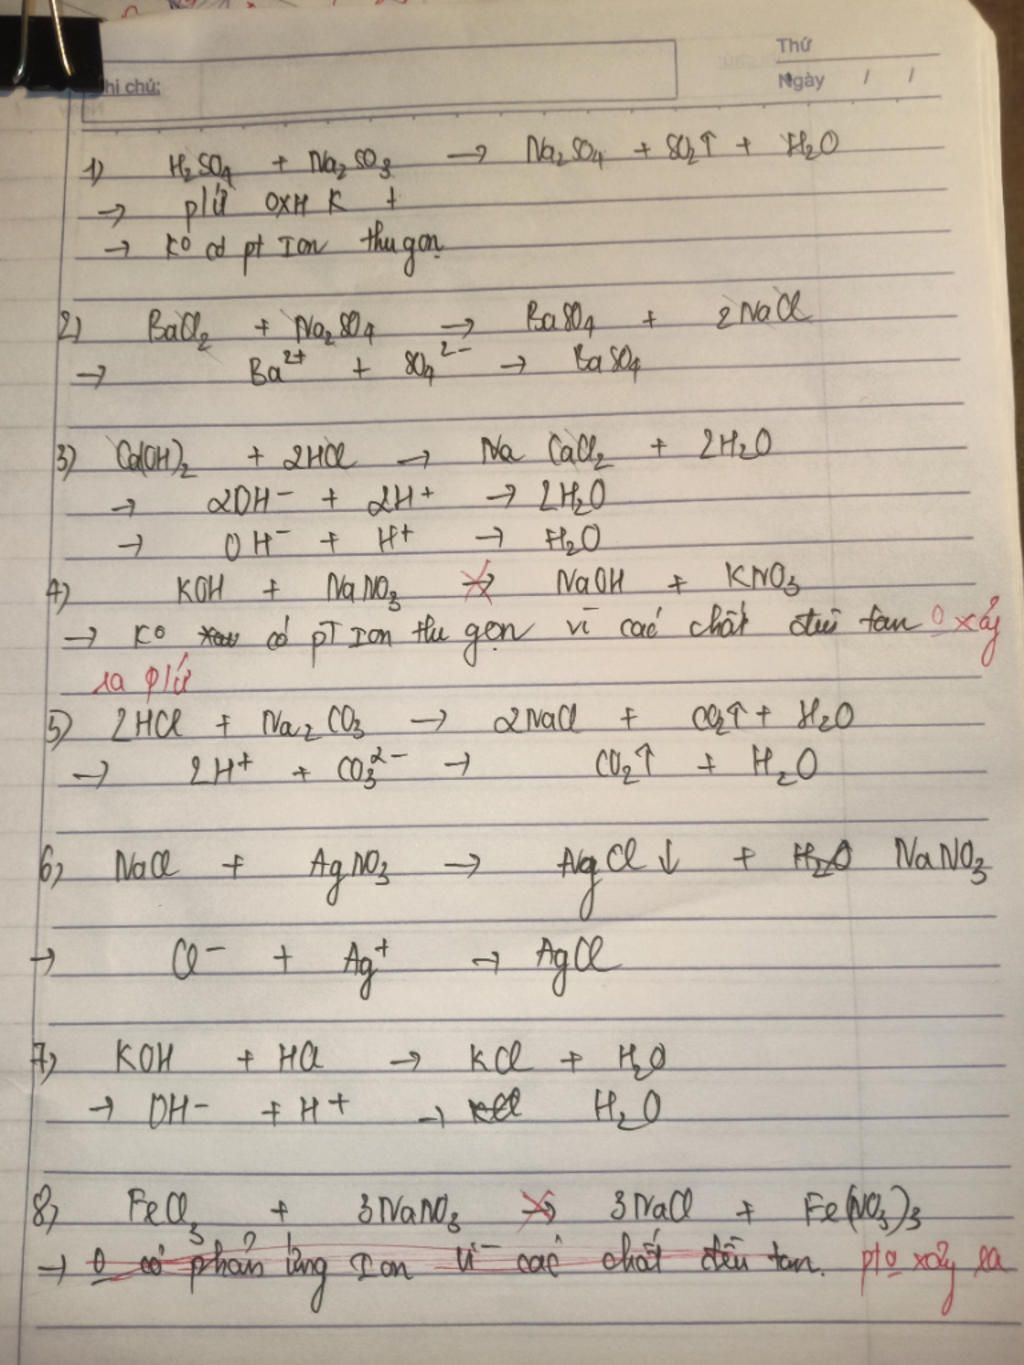 Thứ
hi chú:
Ngày / /
1) H₂SO₄ + Na₂SO₃ → Na₂SO₄ + SO₂↑ + H₂O
→ p/ứ OXH K +
→ Ko có pt Ion thu gọn
2) BaCl₂ + Na₂SO₄ → BaSO₄ + 2NaCl
→ Ba²⁺ + SO₄²⁻ → BaSO₄
3) Ca(OH)₂ + 2HCl → Na CaCl₂ + 2H₂O
→ 2OH⁻ + 2H⁺ → 2H₂O
→ OH⁻ + H⁺ → H₂O
4) KOH + NaNO₃ → NaOH + KNO₃
→ Ko có pT Ion thu gọn vì các chất đều tan 0 xảy
ra p/ứ
5) 2HCl + Na₂CO₃ → 2NaCl + CO₂↑ + H₂O
→ 2H⁺ + CO₃²⁻ → CO₂↑ + H₂O
6) NaCl + AgNO₃ → AgCl↓ + H₂O NaNO₃
→ Cl⁻ + Ag⁺ → AgCl
7) KOH + HCl → KCl + H₂O
→ OH⁻ + H⁺ → KCl H₂O
8) FeCl₃ + 3NaNO₃ → 3NaCl + Fe(NO₃)₃
→ 0 có phản ứng Ion vì các chất đều tan. pt 0 xảy ra